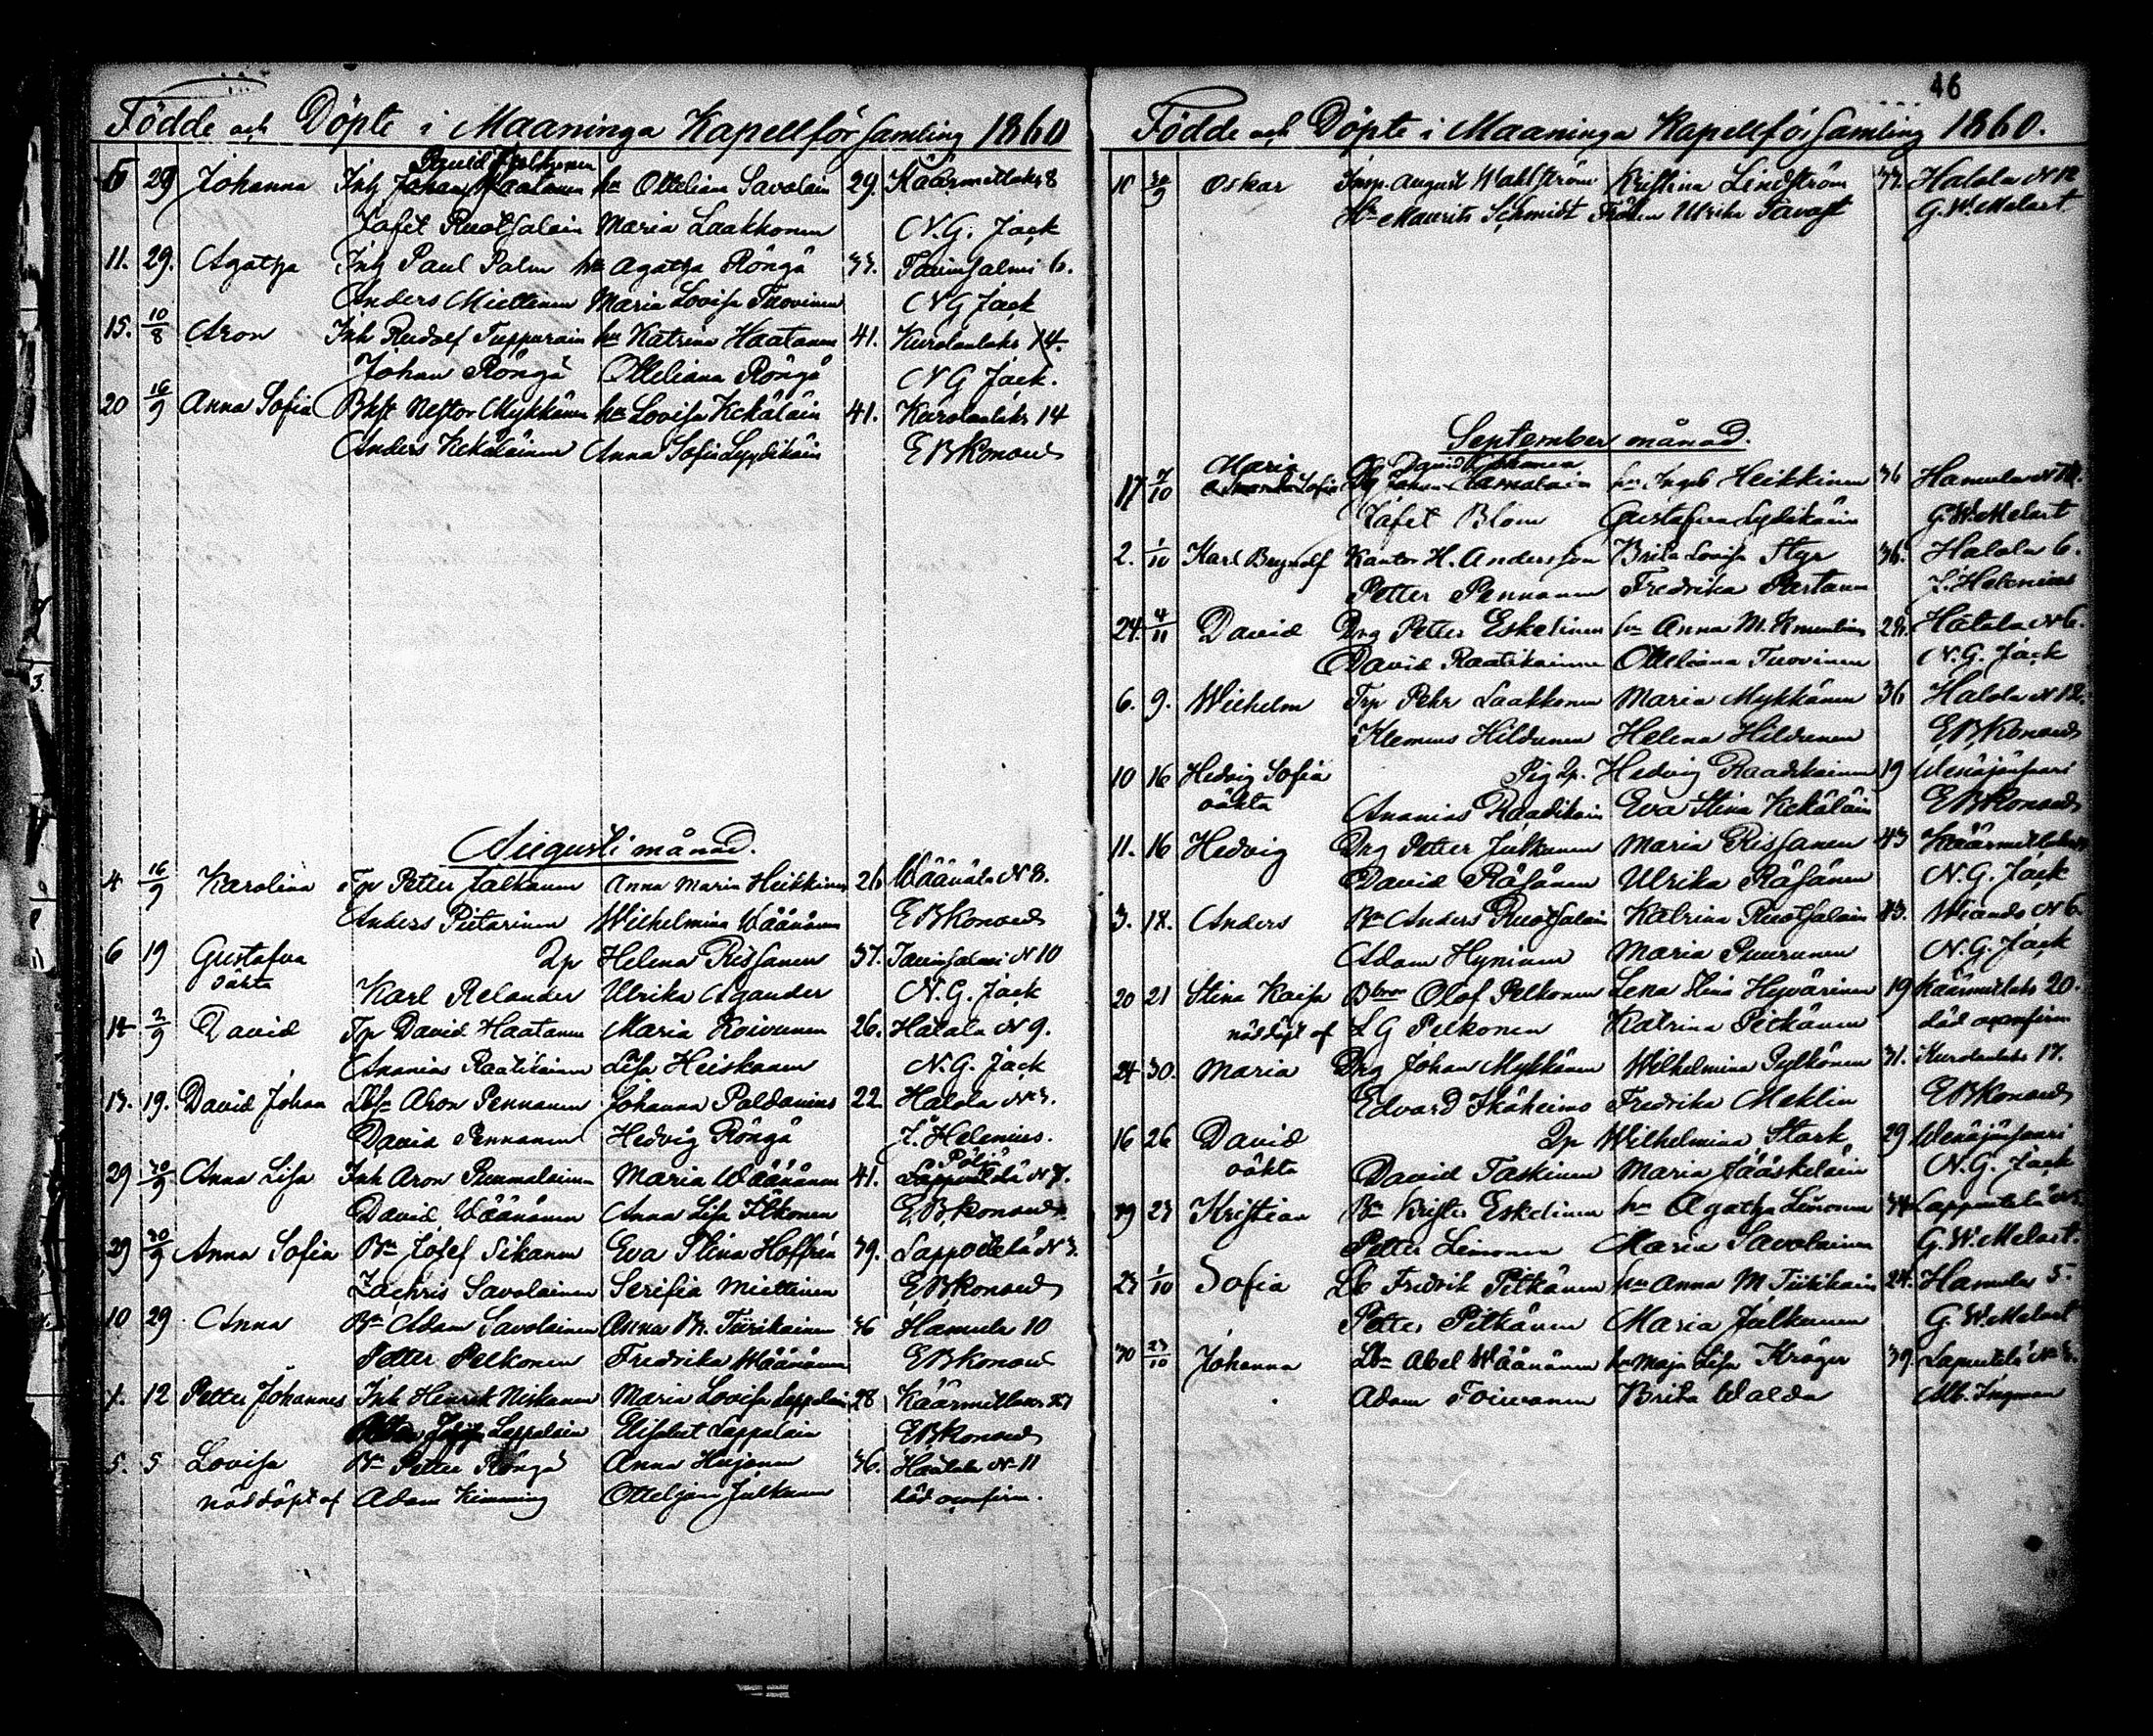 Födde och Döpte i Maaninga Kapellförsamling 1860
David Pelkonen
5 29 Johanna Inh hu Otteliana Savolain 29. Käärmetlaks 8
Jafet Ruotsalain Maria Laakkonen N. G. Jack
11. 29. Agatha Inh Paul Palm hu Agatha Röngä 33. Tavinsalmi 6.
Anders Miettinen Maria Lovisa Tuovinen N G Jack
15. 10/8 Aron Inh Rudolf Tuppurain hu Katrina Haatanen 41. Kurolanlaks 14.
Johan Röngä Otteliana Röngä N G Jack.
20 16/9 Anna Sofia Nestor Mykkänen hu Lovisa Kekäläin 41. Kurolanlaks 14
Anders Kekäläinen Anna Sofia Lyydikäin E B Konow
Augusti månad.
4 16/9 Karolina Tp Petter Jalkanen Anna Maria Heikkinen 26 Wäänälä N 8.
Anders Pietarinen Wilhelmina Wäänänen E B Konow
6 19 Gustafva Qp Helena Rissanen 37. Tavinsalmi N 10
oäkta Karl Relander Ulrika Agander N. G. Jack
14 2/9 David Tp David Haatanen Maria Koivunen 26. Halola N 9.
Ananias Raatikainen Lisa Heiskanen N. G. Jack
13. 19. David Johan Aron Pennanen Johanna Paldanius 22 Halola N 3.
David Pennanen Hedvig Röngä J. Helenius.
Pöljä
29 30/9 Anna Lisa Inh Aron Pennalainen Maria Wäänänen 41. N 7.
David Wäänänen Anna Lisa E. B. Konow
29 30/9 Anna Sofia Bn Josef Sikanen Eva Stina Hoffrén 39. Lappetelä N 3.
Zachris Savolainen Serifia Miettinen E B Konow
10 29 Anna Bn Adam Savolainen Anna M. Tiirikainen 36 Hamula 10
Petter Pelkonen Fredrika Wäänänen E B Konow
1. 12 Petter Johannes Inh Henrik Niskanen Maria Lovisa Lappalain 28 Käärmetlaks 21
Lappalain Elisabet Lappalain E B Konow
5. 5 Lovisa Bn Petter Röngä Anna Hujanen 36. Halola N 11
nöddöpt af Adam Kemming Otteljan Julkunen död oconfirm.
46
Födde och Döpte i Maaninga Kapellförsamling 1860.
10 30/9 Oskar Insp. August Wahlström Kristina Lindström 33. Halola N 12
Hr Maurits Schmidt Fröken Ulrika Tavast G. W. Melart
September månad.
Maria David Pelkonen
17 7/10 Sofia hu Ingeb Heikkinen 36 Hamula N 10.
Jafet Blom Gustafva Lydikäin G. W. Melart
2. 1/10 Karl Brynolf Kantor H. Andersson Brita Lovisa Styr 36. Halola 6.
Petter Pennanen Fredrika Partanen J. Helenius
24. 4/11 David Drg Petter Eskelinen hu Anna M. 28. Halola N 6.
David Raatikainen Otteliana Tuovinen N. G. Jack
6. 9. Wilhelm Trp Pehr Laakkonen Maria Mykkänen 36 Halola N 12.
Klemens Hildunen Helena Hildunen E B Konow
10 16 Hedvig Sofia Pig Qp. Hedvig Raadikainen 19 Wenäjänsaari
oäkta Ananias Raadikain Eva Stina Kekäläin E B Konow
11. 16 Hedvig Drg Petter Julkunen Maria Rissanen 43 Käärmetlaks
David Räsänen Ulrika Räsänen N. G. Jack
3. 18. Anders Bn Anders Ruotsalain Katrina Ruotsalain 43. Wiando N 6
Adam Hyninen Maria Puurunen N. G. Jack
20 21 Stina Kaisa Olof Pelkonen Lena Stina Hyvärinen 19 Käärmetlaks 20.
nöddöpt af L G Pelkonen Katrina Pitkänen död oconfirm
24 30. Maria Drg Johan Mykkänen Wilhelmina Pylkönen 31. Kurolanlaks 17.
Edvard Ikäheimo Fredrika Meklin E B Konow
16 26 David Qp Wilhelmina Stark 29 Wenäjänsaari
oäkta David Taskinen Maria Jääskeläin N. G. Jack
29 23 Kristian Bn Krister Eskelinen hu Agatha Limonen 34 Lappetelä N 3.
Petter Limonen Maria Savolainen G. W. Melart.
23 1/10 Sofia Lb Fredrik Pitkänen hu Anna M Tiirikain 24. Hamula 5.
Petter Pitkänen Maria Julkunen G. W. Melart
30 23/10 Johanna Lbn Abel Wäänänen hu Maja Lisa Kröger 39. Laputelä N 3.
Adam Toivanen Brita Walda Alb. Ingman